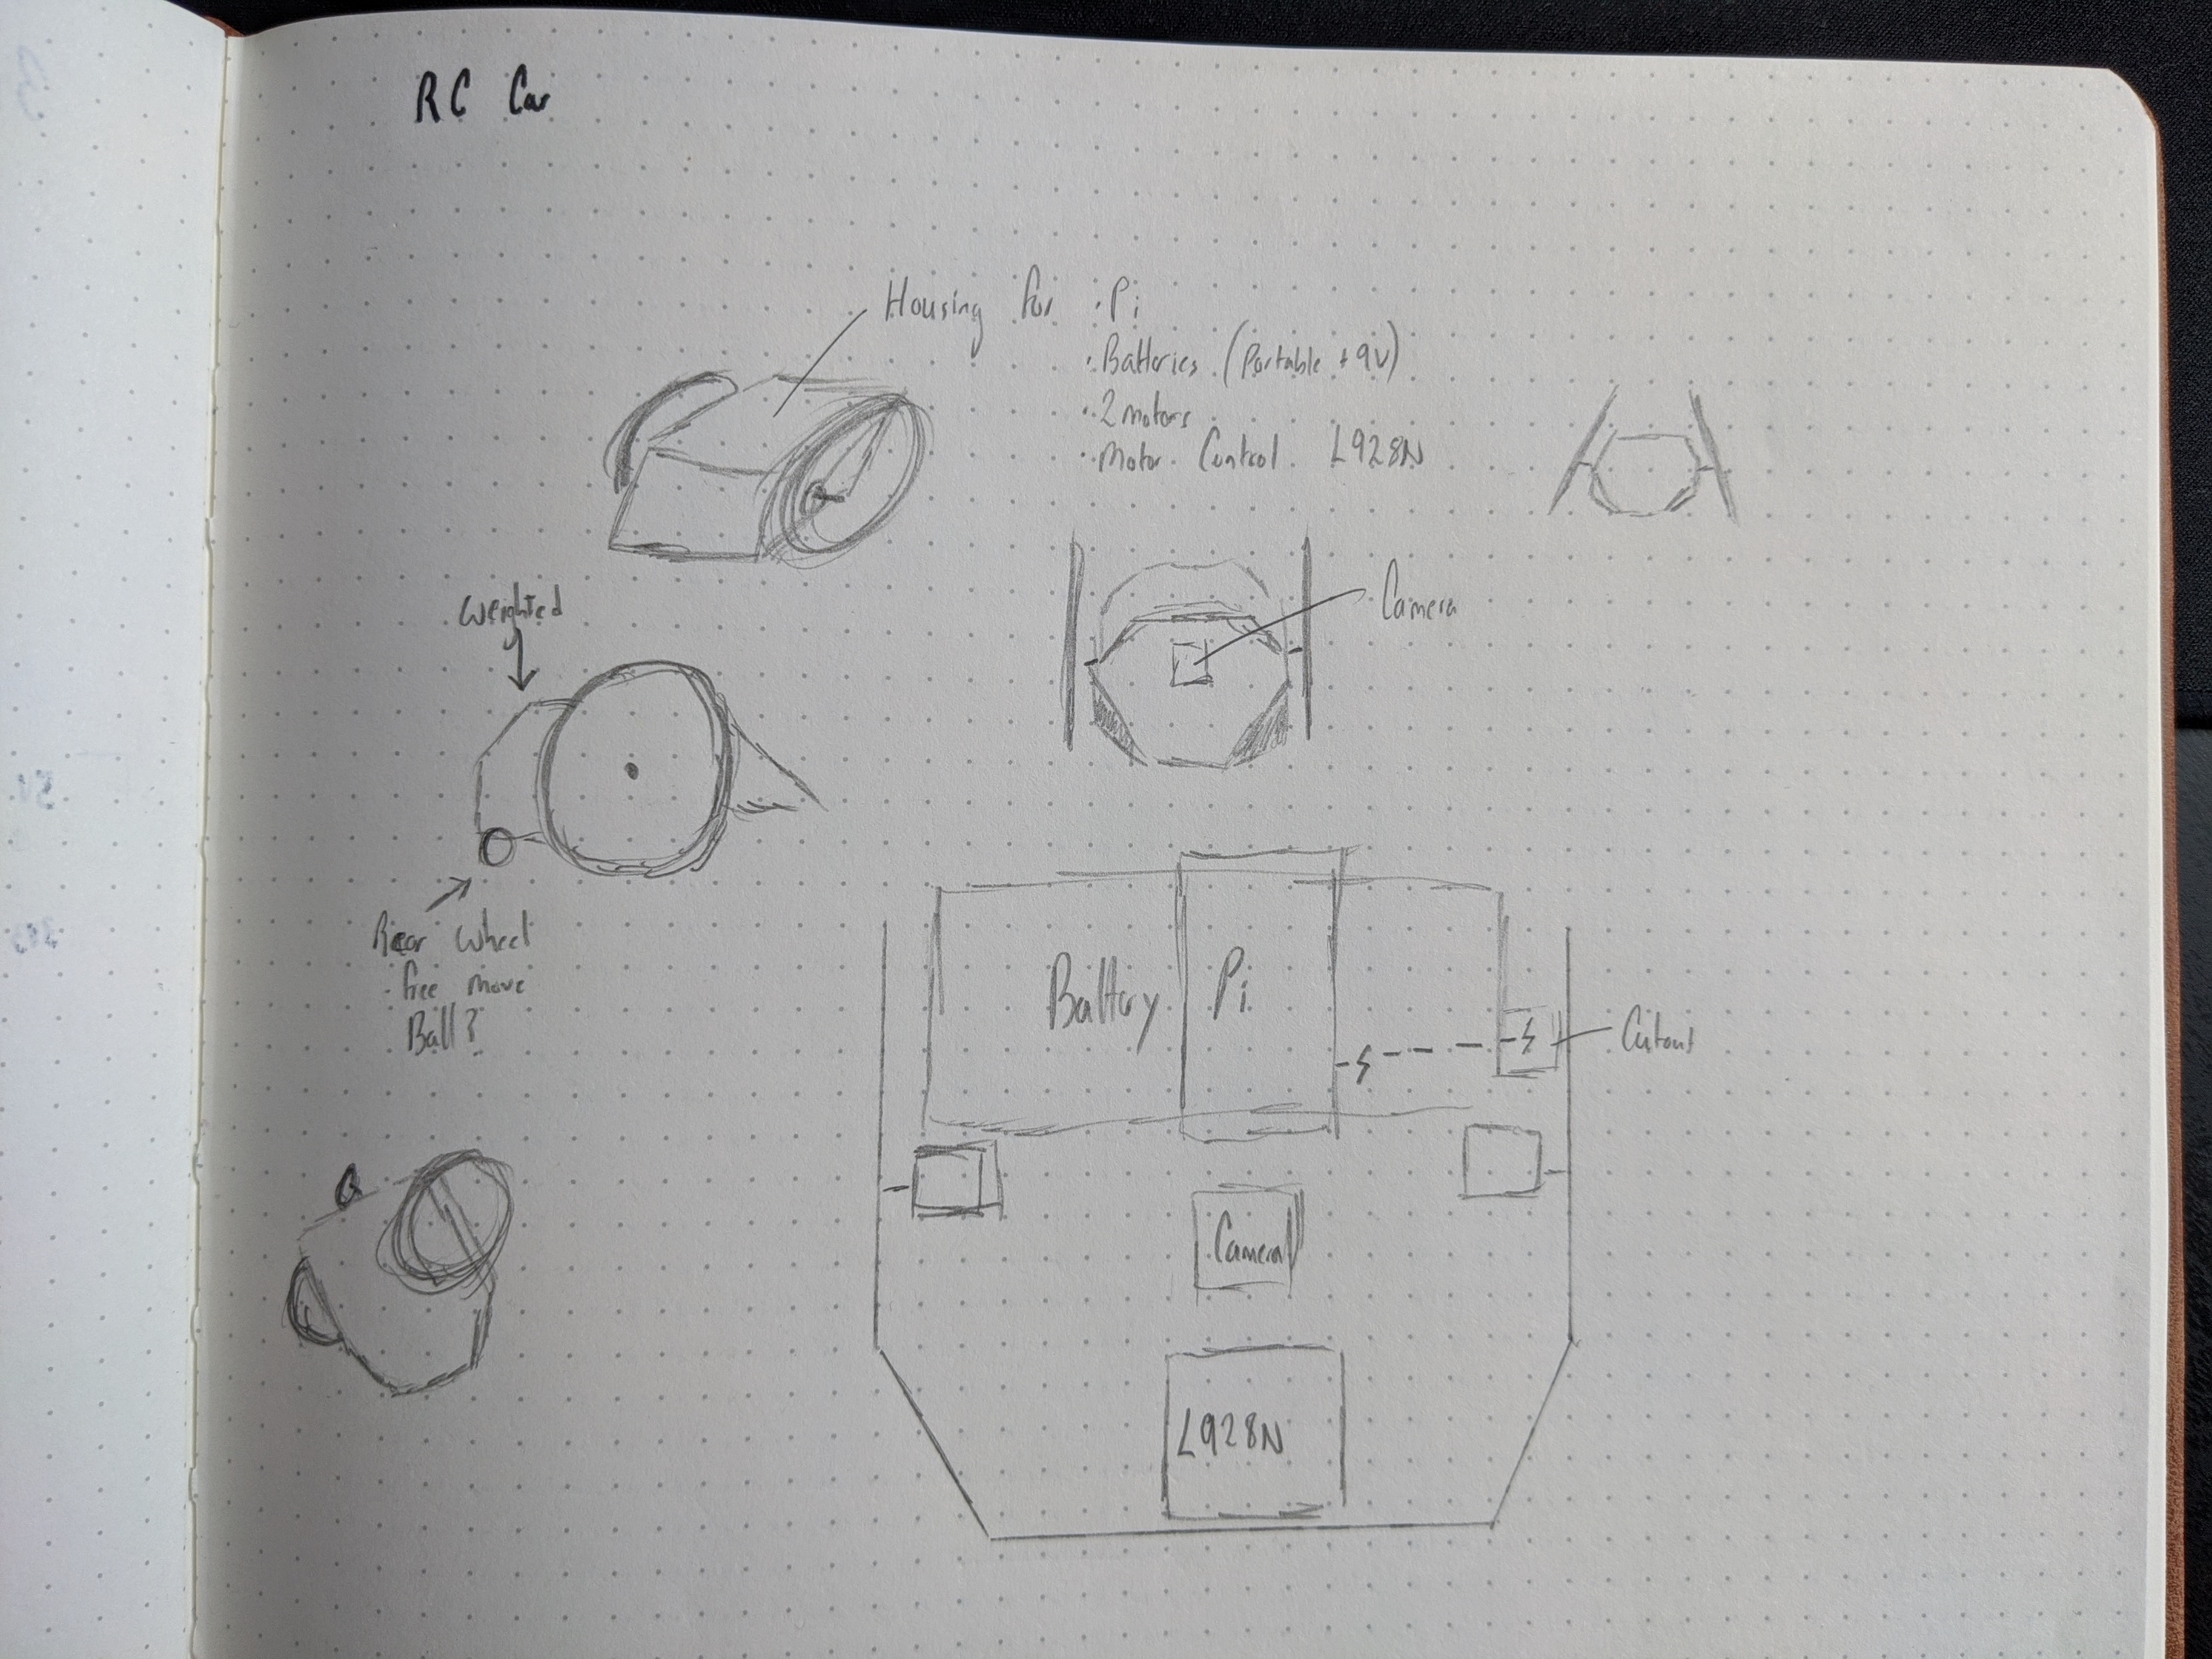 RC Car
Housing for
· Pi
· Batteries (Portable + 9V)
· 2 motors
· Motor Control L928N
Weighted
Camera
Rear wheel
· free move
Ball?
Battery
Pi
Cutout
Camera
L928N